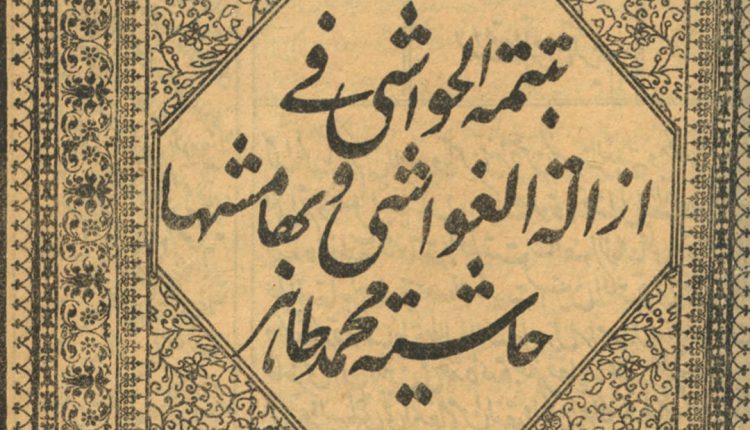 تتمة الحواشي في
ازالة الغواشي وبهامشها
حاشية محمد طاهر